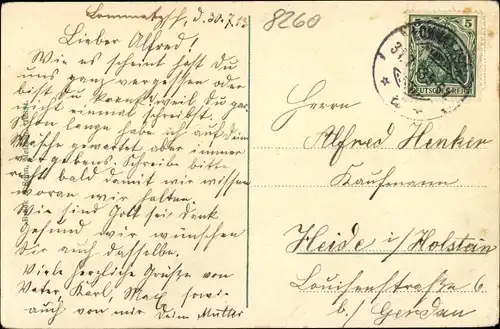 Lommatzsch, d. 30.7.13
8260
Lieber Alfred!
Wie es scheint hast du
uns ganz vergessen oder
bist du krank, weil Du gar
nicht einmal schreibst.
Schon lange habe ich auf deine
Wäsche gewartet aber immer
vergebens. Schreibe bitte
recht bald damit wir wissen
woran wir halten.
Wir sind Gott sei Dank
Gesund wir wünschen
Dir auch dasselbe.
Viele herzliche Grüße von
Vater Karl, Max sowie
auch von mir Deine Mutter
5 5
DEUTSCHES REICH
Herrn
Alfred Henker
Kaufmann
Heide i/Holstein
Louisenstraße 6
b./ Gerdau